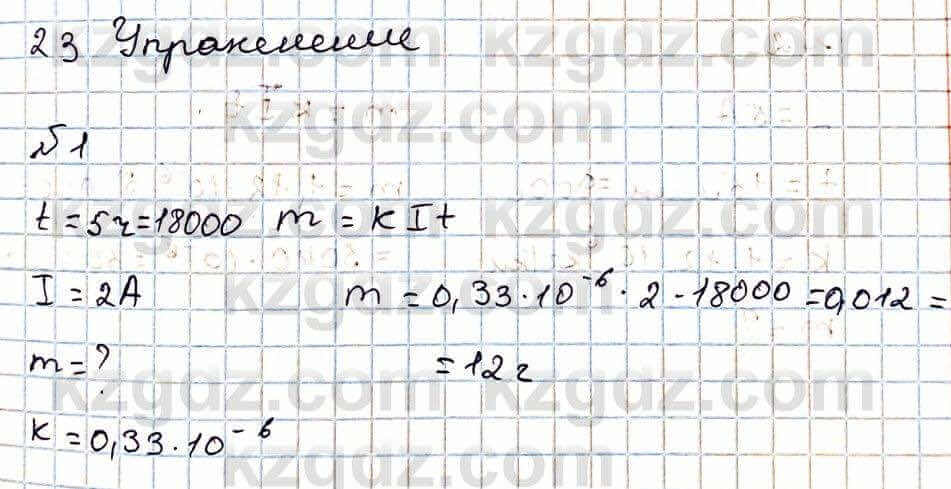 23 Упражнение
№1
t = 5ч = 18000 m = k I t
I = 2A m = 0,33 · 10⁻⁶ · 2 - 18000 = 0,012 =
m = ? = 12 г
k = 0,33 · 10⁻⁶
kzgdz.com